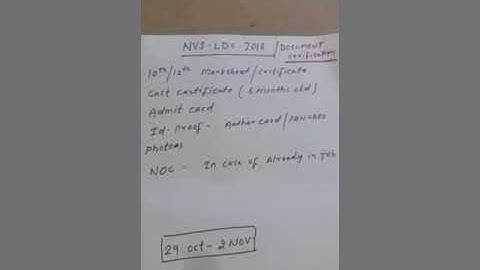 NVS-LDC-2016 / Document
verification
10th/12th Marksheet/certificate
Cast castificate (6 months old)
Admit card
Id-Proof - Aadhar card/PANCARD
photoes
NOC - In case of Already in Job
29 oct - 2 NOV